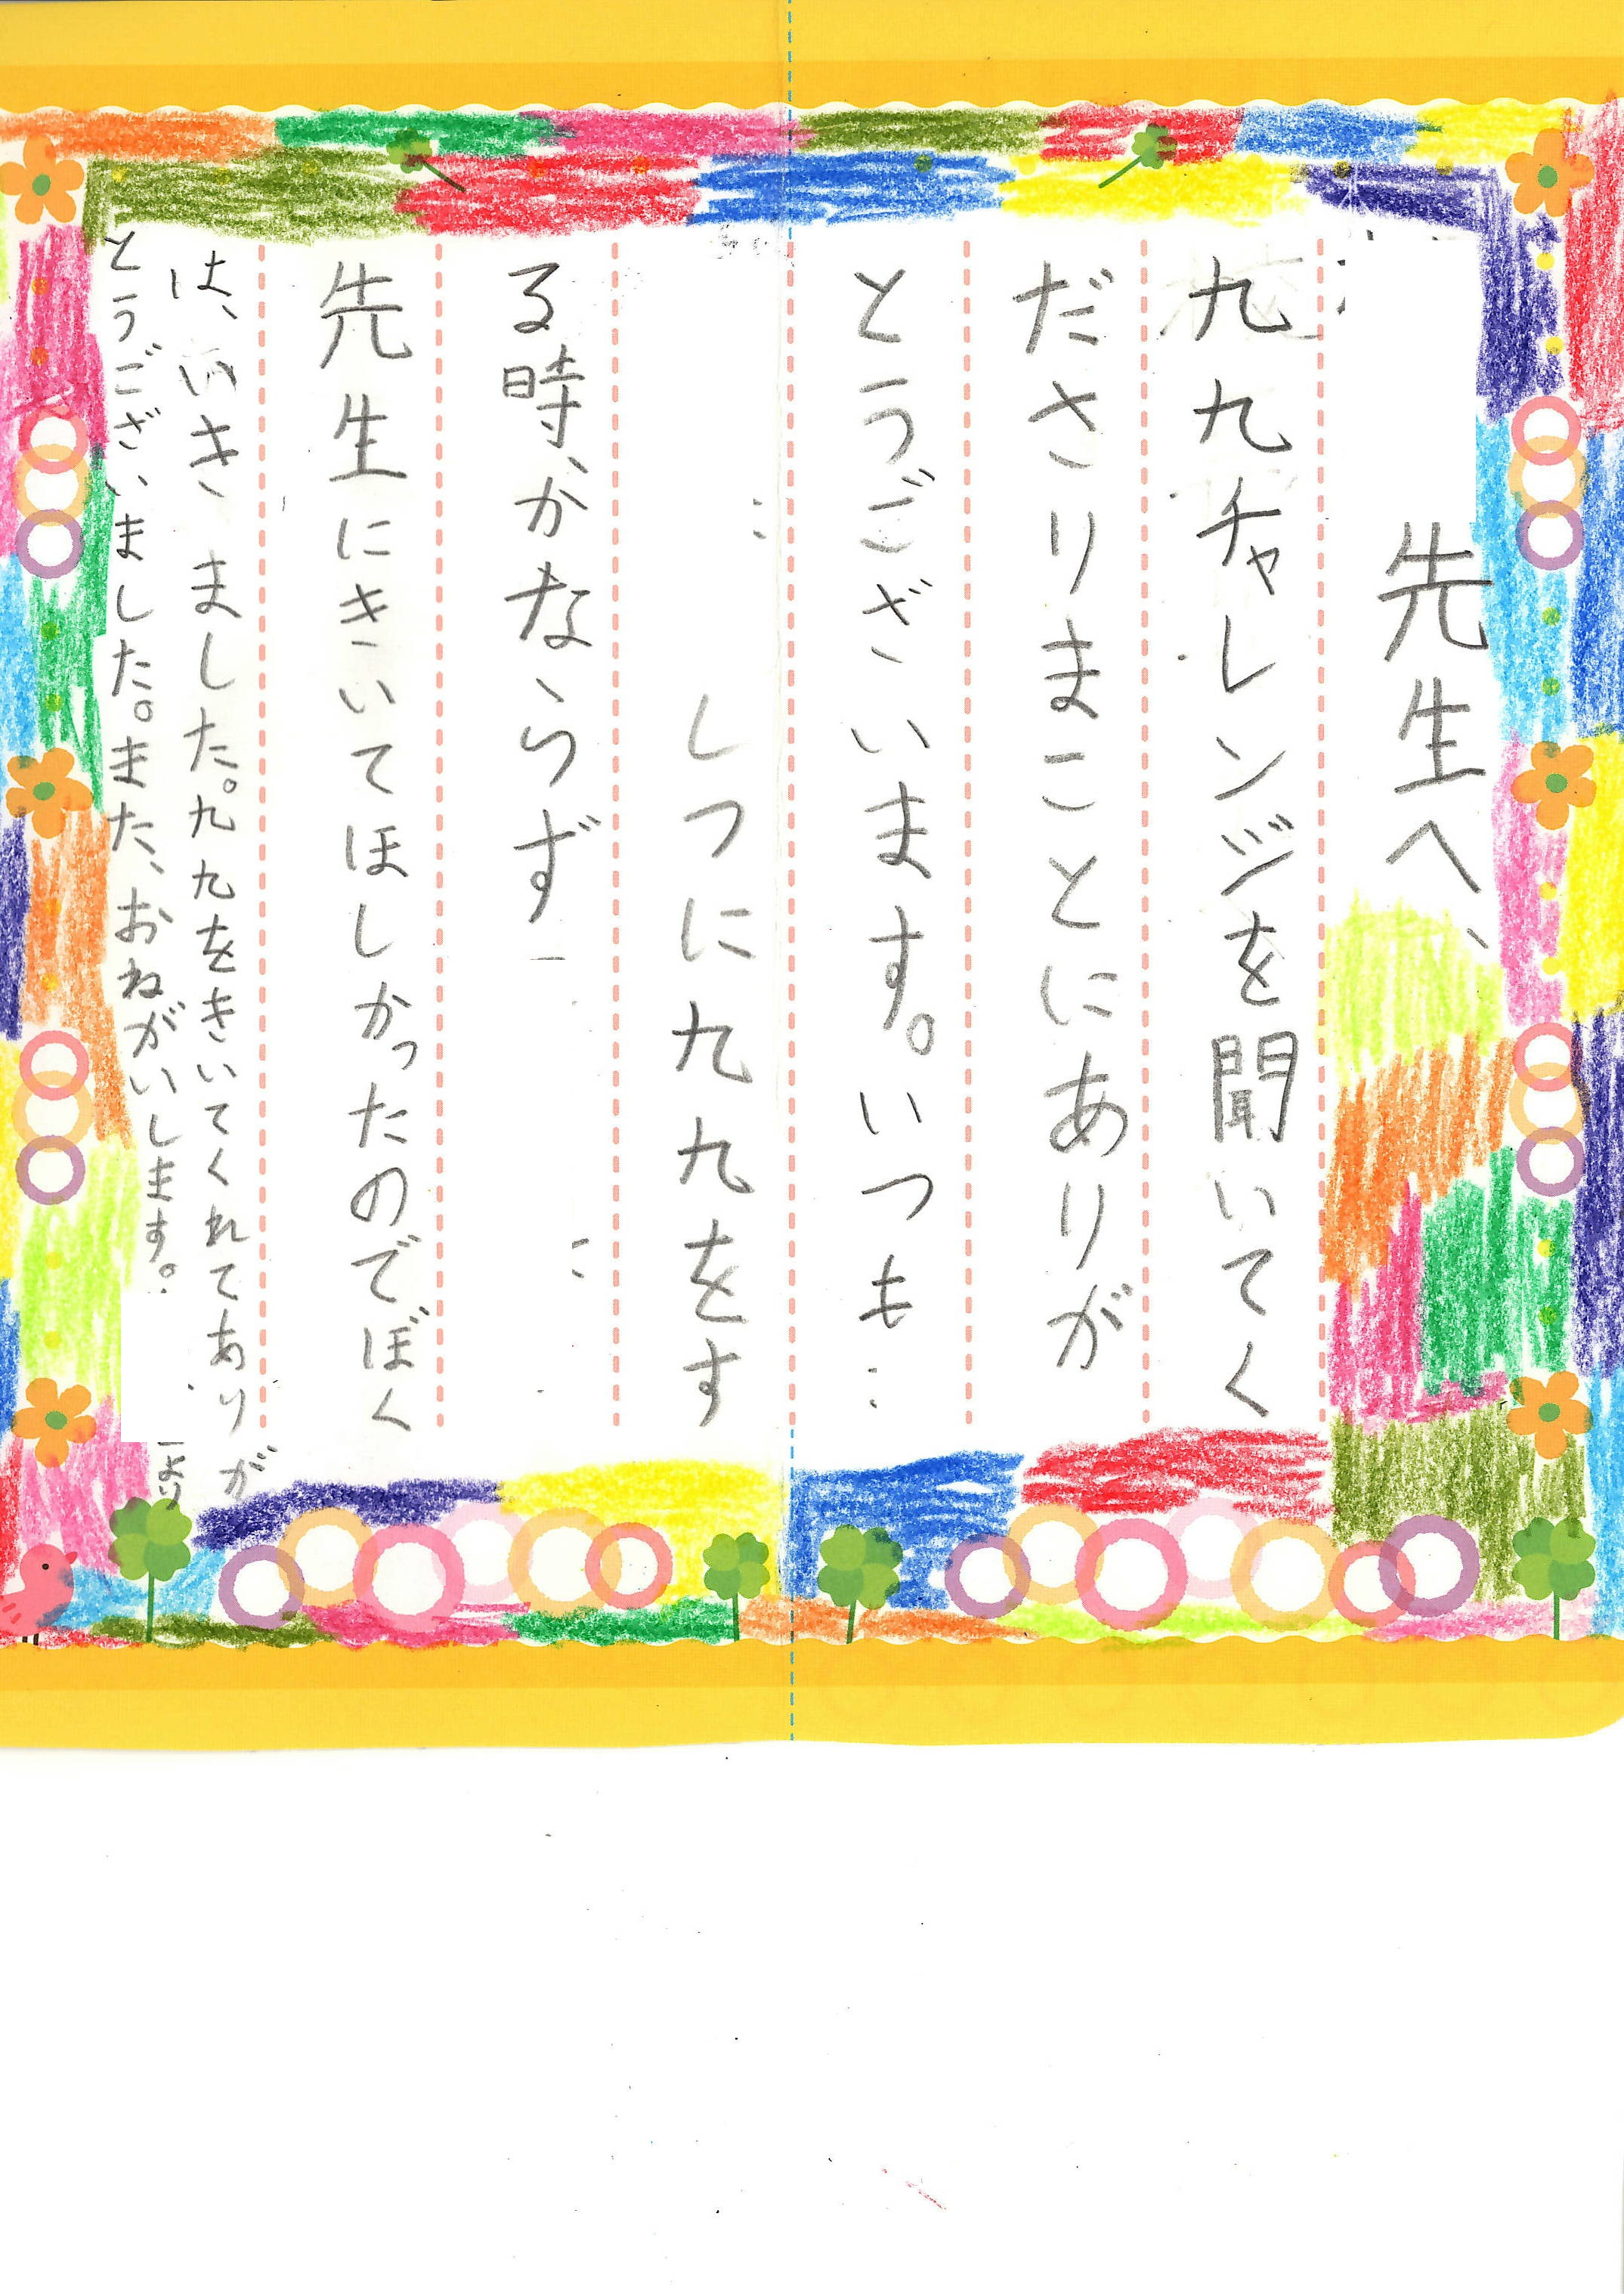 先生へ、
九九チャレンジを聞いてく
ださりまことにありが
とうございます。いつも
しつに九九をす
る時、かならず
先生にきいてほしかったのでぼく
は、いきました。九九をきいてくれてありが
とうございました。また、おねがいします。
より